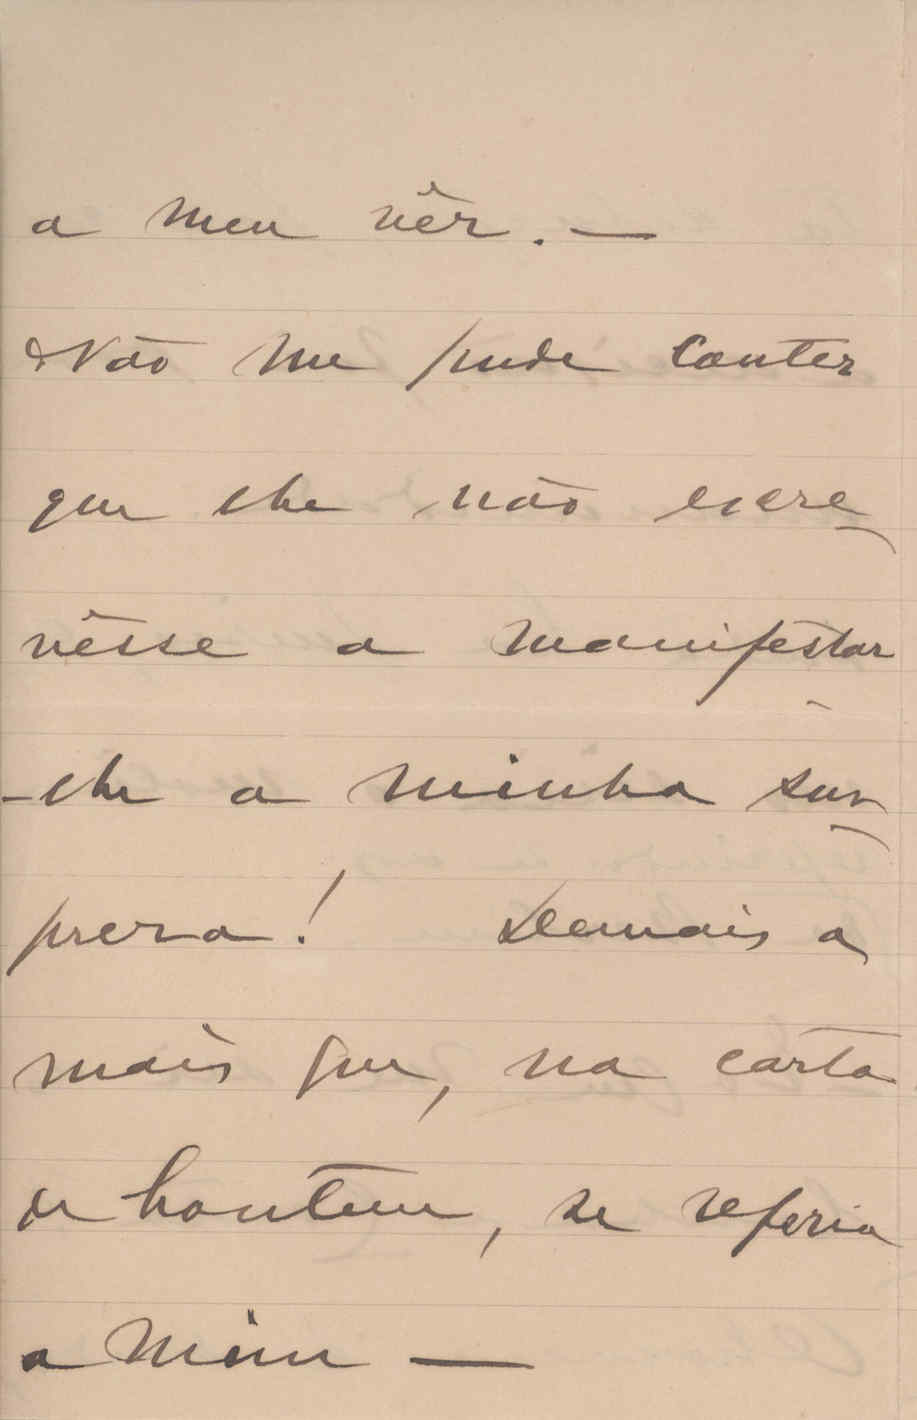 a meu vêr. —
Não me pude conter
que lhe não escre-
vêsse a manifestar
-lhe a minha sur-
preza! Demais a
mais que, na carta
de hontem, se referia
a mim —